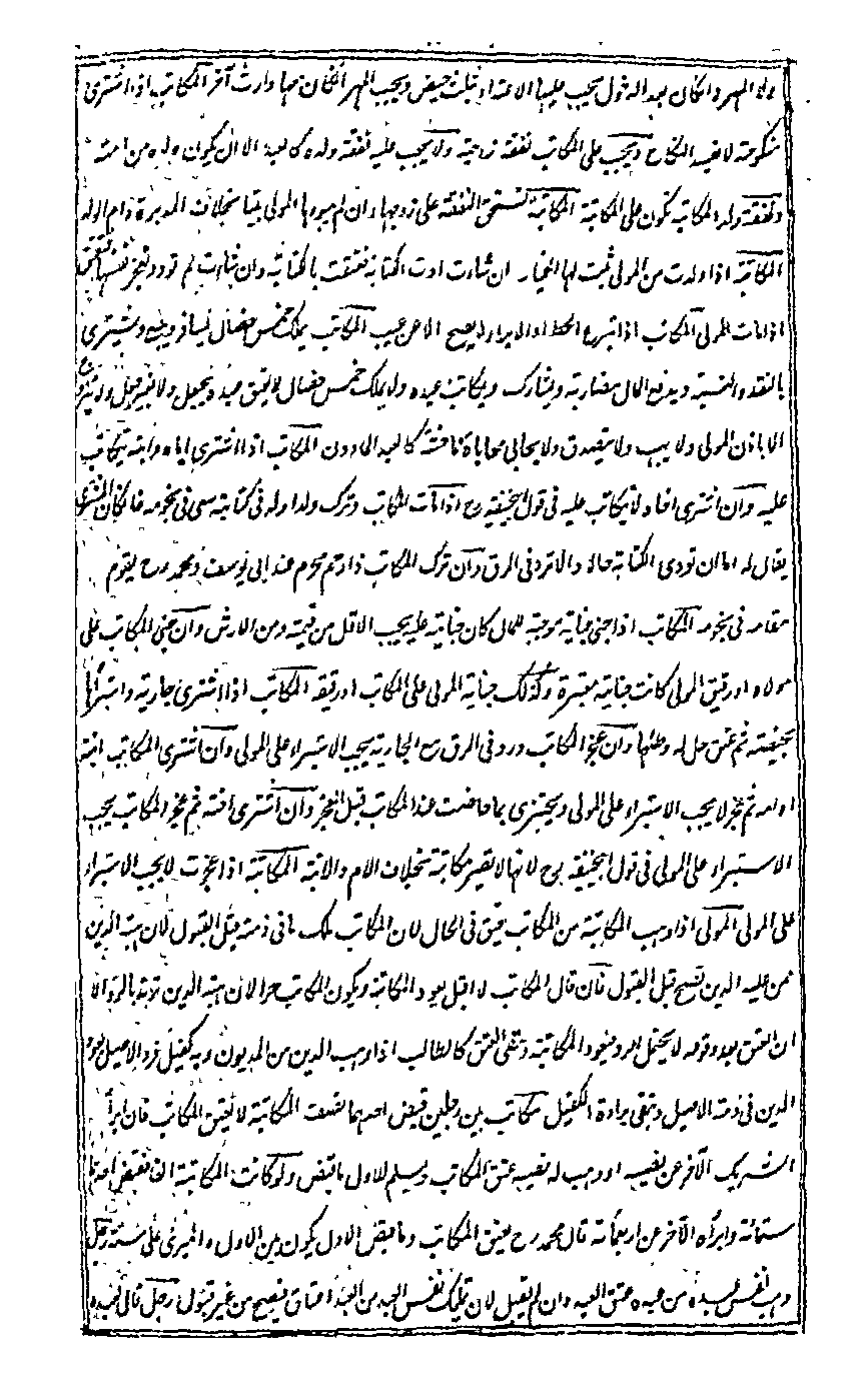 ولا المهر وان كان بعد الدخول يجب عليها الاعتداد بثلث حيض ويجب المهر ان كان معها وارث آخر المكاتب اذا اشترى
منكوحته لا يفسد النكاح ويجب على المكاتب نفقة زوجته ولا يجب عليه نفقة ولده كالعبد الا ان يكون ولده من امته
ونفقة ولد المكاتبة تكون على المكاتبة المكاتبة تستحق النفقة على زوجها وان لم يبوءها المولى بيتا بخلاف المدبرة وام الولد
المكاتبة اذا ولدت من المولى ثبت لها الخيار ان شاءت ادت الكتابة فعتقت بالكتابة وان شاءت لم تؤد وتعجز نفسها فتعتق
اذا مات المولى المكاتب اذا تبرع الحط او الابراء لا يصح الا عن عيب المكاتب يملك خمس خصال يسافر ويبيع ويشترى
بالنقد والنسيئة ويدفع المال مضاربة ويشارك ويكاتب عبده ولا يملك خمس خصال لا يعتق عبده بجعل ولا بغير جعل ولا يتزوج
الا باذن المولى ولا يهب ولا يتصدق ولا يحابي محاباة فاحشة كالعبد المأذون المكاتب اذا اشترى اباه وابنه يكاتب
عليه وان اشترى اخاه لا يكاتب عليه في قول ابيحنيفة رح اذا مات المكاتب وترك ولدا ولد في كتابته سعى في نجومه فان كان المشترى
يقال له اما ان تودى الكتابة حالة والا ترد في الرق وان ترك المكاتب ذا رحم محرم عند ابي يوسف ومحمد رح يقوم
مقامه في نجومه المكاتب اذا جنى جناية موجبة للمال كان جنايته عليه يجب الاقل من قيمته ومن الارش وان جنى المكاتب على
مولاه او رقيق المولى كانت جنايته معتبرة وكذلك جناية المولى على المكاتب او رقيقه المكاتب اذا اشترى جارية واستبرأها
بحيضة ثم عتق حل له وطئها وان عجز المكاتب ورد في الرق مع الجارية يجب الاستبراء على المولى وان اشترى المكاتب ابنته
او امه ثم عجز لا يجب الاستبراء على المولى ويجتزى بما حاضت عند المكاتب قبل العجز وان اشترى اخته ثم عجز المكاتب يجب
الاستبراء على المولى في قول ابيحنيفة رح لانها لا تصير مكاتبة بخلاف الام والابنة المكاتبة اذا عجزت لا يجب الاستبراء
على المولى المولى اذا وهب المكاتبة من المكاتب يعتق في الحال لان المكاتب ملك ما في ذمته قبل القبول لان هبة الدين
ممن عليه الدين تصح قبل القبول فان قال المكاتب لا اقبل يعود المكاتبة ويكون المكاتب حرا لان هبة الدين ترتد بالرد الا
ان العتق بعد وقوعه لا يحتمل الرد فيعود المكاتبة وتبقى العتق كالطالب اذا وهب الدين من المديون وبه كفيل فرد الاصيل يعود
الدين في ذمة الاصيل وتبقى براءة الكفيل مكاتب بين رجلين قبض احدهما نصف المكاتبة لا يعتق المكاتب فان ابرأ
الشريك الآخر عن نصيبه او وهب له نصيبه عتق المكاتب ويسلم للاول ما قبض ولو كانت المكاتبة الفا فقبض احدهما
ستمائة وابرأه الآخر عن اربعمائة قال محمد رح يعتق المكاتب وما قبض الاول يكون بين الاول والمبرئ على ستة رجل
وهب نفس عبده من عبده عتق العبد وان لم يقبل لان تمليك نفس العبد من العبد اعتاق فيصح من غير قبول رجل قال لعبده